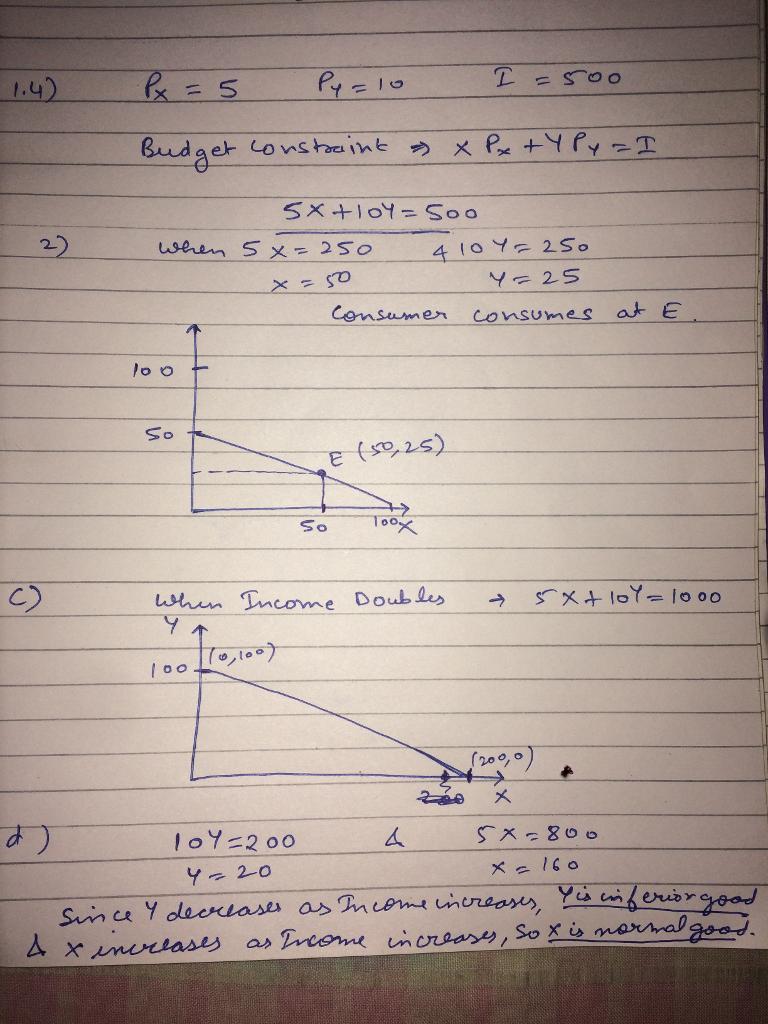 1.4) Px = 5 Py = 10 I = 500
Budget Constraint ⇒ X Px + Y Py = I
5X + 10Y = 500
2) When 5X = 250 & 10Y = 250
X = 50 Y = 25
Consumer consumes at E.
100
50
E (50,25)
50 100 X
C) When Income Doubles → 5X + 10Y = 1000
Y
100 (0,100)
(200,0)
X
d) 10Y = 200 & 5X = 800
Y = 20 X = 160
Since Y decreases as Income increases, Y is inferior good
& X increases as Income increases, So X is normal good.